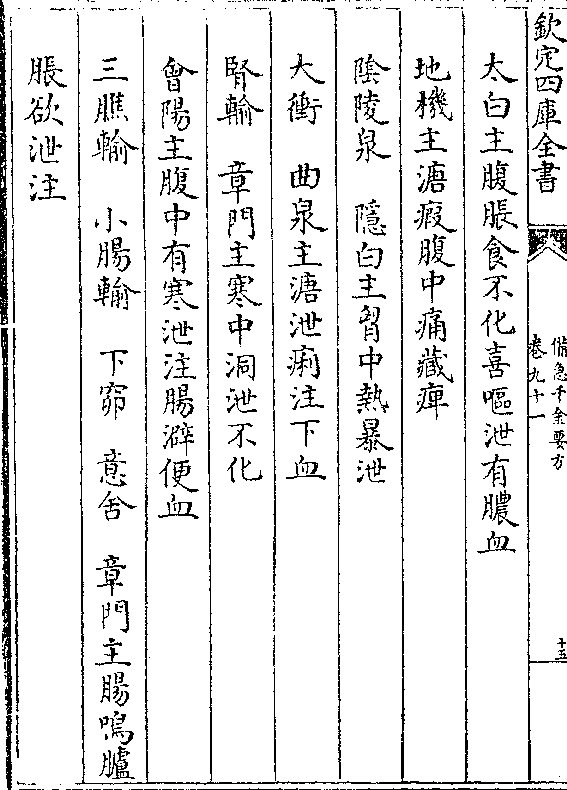 欽定四庫全書
備急千金要方
卷九十一
十五
太白主腹脹食不化喜嘔泄有膿血
地機主溏瘕腹中痛藏痺
陰陵泉 隱白主胷中熱暴泄
大衝 曲泉主溏泄痢注下血
腎輸 章門主寒中洞泄不化
會陽主腹中有寒泄注腸澼便血
三膲輸 小腸輸 下窌 意舍 章門主腸鳴臚
脹欲泄注